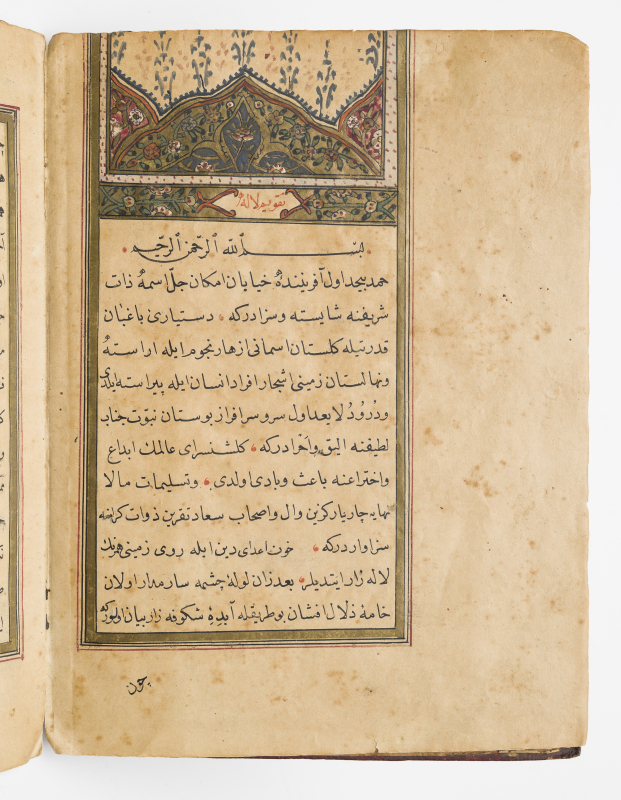 تقويم لاله
بسم الله الرحمن الرحيم
حمد بيحد اول آفريننده خيابان امكان جل اسمه ذات
شريفنه شايسته و سزادركه دستيارئ باغبان
قدرتيله كلستان اسمانى ازهار نجوم ايله اراسته
ونهالستان زمينى اشجار افراد انسان ايله پيراسته ايلدى
ودرود لا يعد اول سرو سرافراز بوستان نبوت جناب
لطيفنه اليق واحرادركه كلشنسراى عالمك ابداع
واختراعنه باعث وبادى اولدى وتسليمات مالا
نهايه چار يار كزين وال واصحاب سعادتقرين ذوات كرامنه
سزاواردركه خون اعداى دين ايله روى زمينى
لاله زار ايتديلر بعد زان لوله چشمه سار مدار اولان
خامهٔ ذلال افشان بو طريقله آبدهٔ شكوفه زار بيان اولوركه
چون